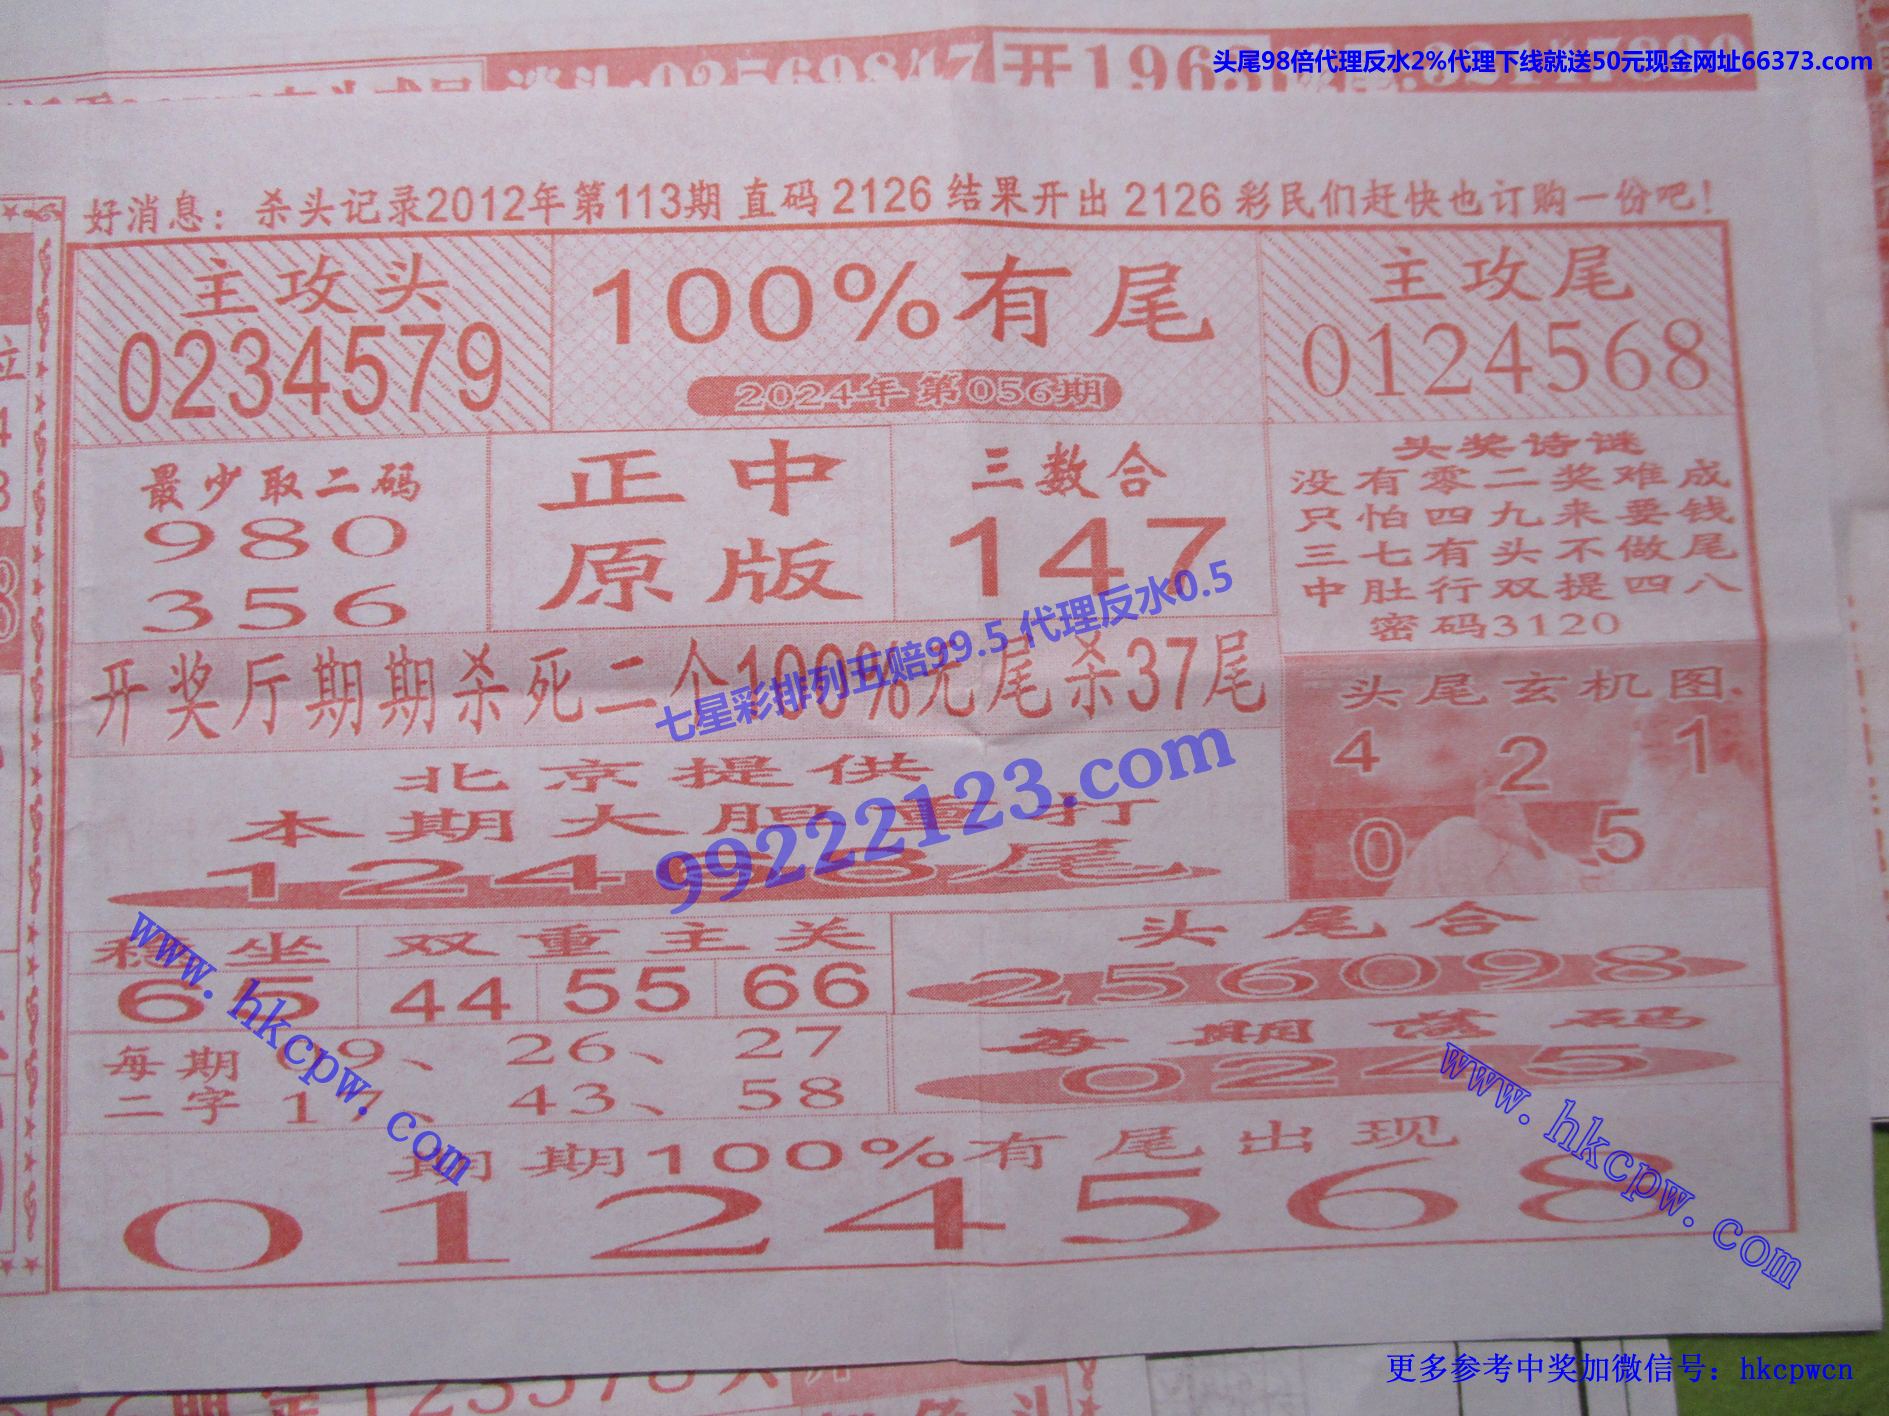 头尾98倍代理反水2%代理下线就送50元现金网址66373.com
开196
好消息：杀头记录2012年第113期 直码 2126 结果开出 2126 彩民们赶快也订购一份吧！
主攻头
0234579
100%有尾
2024年第056期
主攻尾
0124568
最少取二码
980
356
正中
原版
三数合
147
头奖诗谜
没有零二奖难成
只怕四九来要钱
三七有头不做尾
中肚行双提四八
密码3120
七星彩排列五赔99.5 代理反水0.5
开奖厅期期杀死二个100%无尾杀37尾
头尾玄机图
4 2 1
0 5
99222123.com
北京提供
本期大胆重打
12468尾
稳坐
65
双重主关
44 55 66
头尾合
256098
每期
二字
09、26、27
17、43、58
每期落码
0245
www.hkcpw.com
www.hkcpw.com
期期100%有尾出现
0124568
更多参考中奖加微信号：hkcpwcn